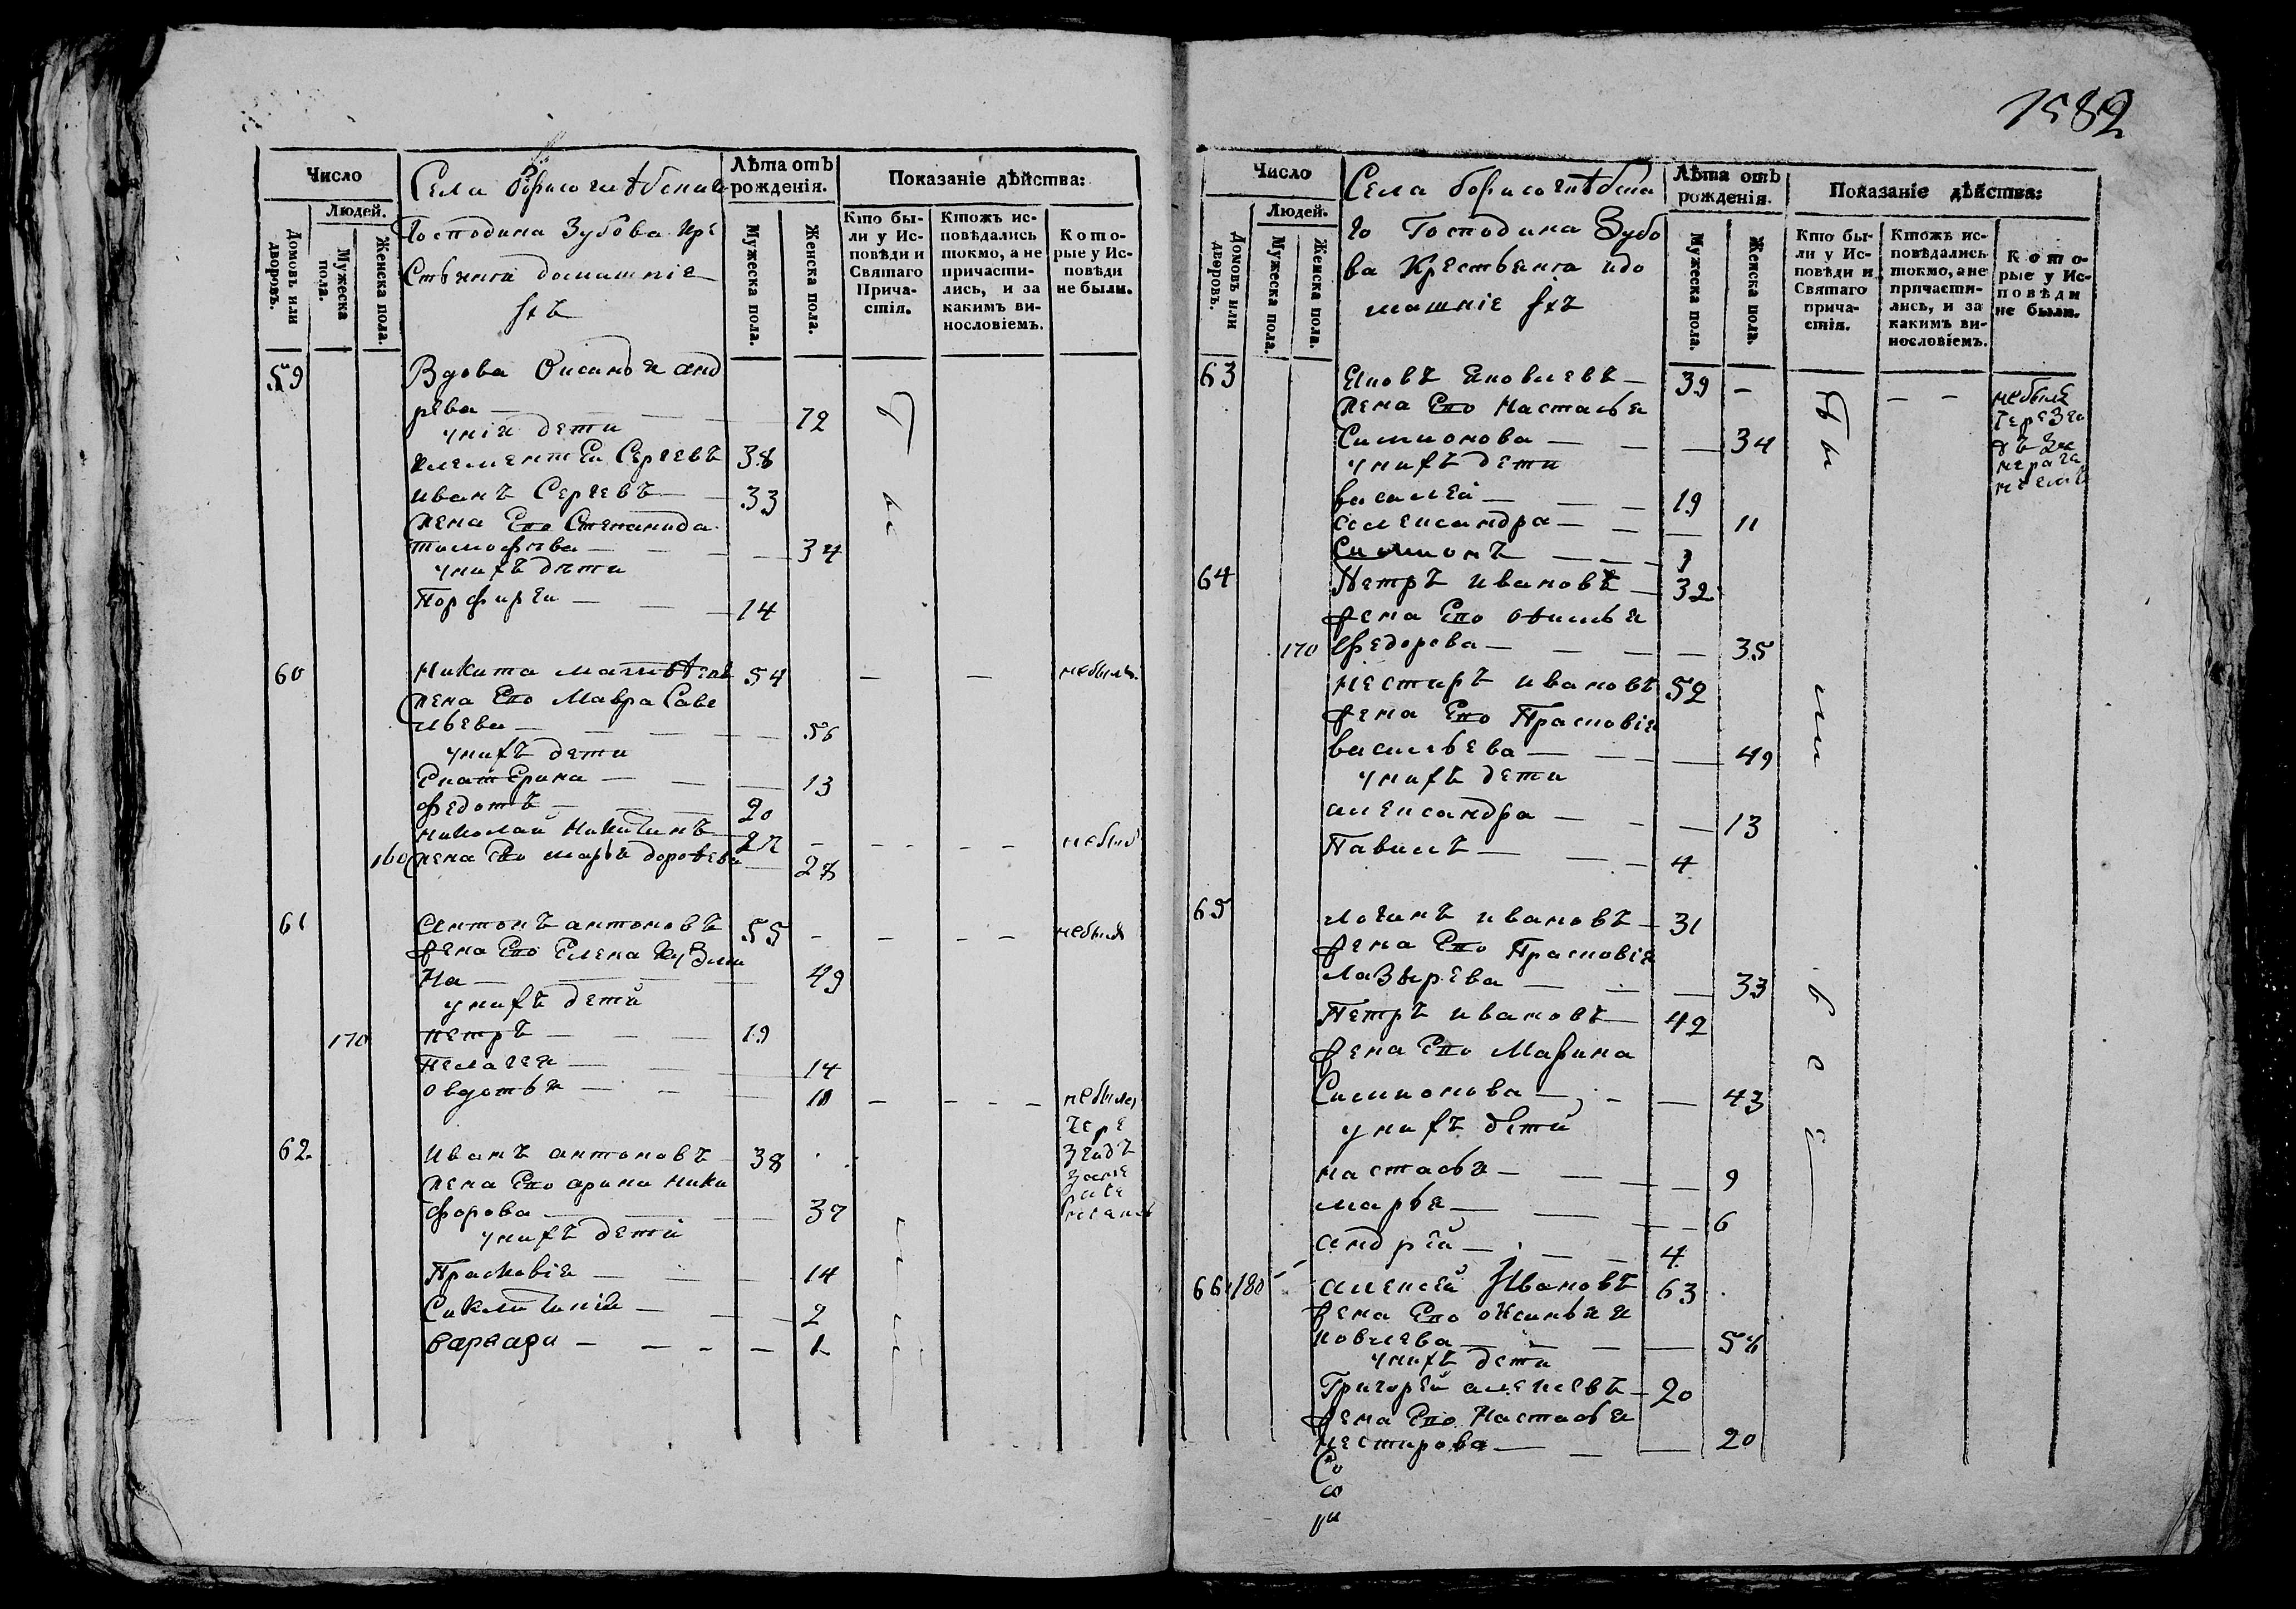 1582
Число
Людей.
Домовъ или дворовъ.
Мужеска пола.
Женска пола.
Села
Господина Зубова кре
стьяня домашніе
ихъ
Лѣта отъ рожденія.
Мужеска пола.
Женска пола.
Показаніе дѣйства:
Кто бы-
ли у Ис-
повѣди и
Святаго
Прича-
стія.
Ктожъ ис-
повѣдались
токмо, а не
причасти-
лись, и за
какимъ ви-
нословіемъ.
Кото-
рые у Ис-
повѣди
не были.
59 Вдова Оксинья анд
рева — 72
у нія дети
Клементеи Сергевъ 38
иванъ Сергевъ 33
жена Его Степанида
тимофева — 34
у нихъ дети
Порфиреи — 14
60 Никита матвѣевъ 54 — — небылъ
жена Его Мавра Саве
льева — 56
у нихъ дети
Екатерина — 13
федотъ — 20
николай Никитинъ 27 — — небылъ
160 жена Его марья дорофева 28
61 Антонъ антоновъ 55 — — небылъ
жена Его Елена Кузми
на — 49
у нихъ дети
170 петръ — 19
Пелагея — 14
овдотья — 11 — — небыла
чере
згадъ
62 иванъ антоновъ 38
жена Его арина ники
форова — 37
у нихъ дети
Прасковія — 14
2
варвара — 1
Число
Людей.
Домовъ или дворовъ.
Мужеска пола.
Женска пола.
Села борисоглѣбска
го Господина Зубо
ва Крестьяня идо
машніе ихъ
Лѣта отъ рожденія.
Мужеска пола.
Женска пола.
Показаніе дѣйства:
Кто бы-
ли у Ис-
повѣди и
Святаго
прича-
стія.
Ктожъ ис-
повѣдались
токмо, а не
причасти-
лись, и за
какимъ ви-
нословіемъ.
Кото-
рые у Ис-
повѣди
не были.
63 Яковъ Яковлевъ — 39 — — небылъ
жена Его Настасья
Симионова — 34
у нихъ дети
василей — 19
александра — 11
Симионъ — 3
64 Петръ ивановъ — 32
жена Его
170 федорова — 35
нестиръ ивановъ 52
жена Его Прасковія
васильева — 49
у нихъ дети
александра — 13
Павилъ — 4
65 логинъ ивановъ — 31
жена Его Прасковія
лазырева — 33
Петръ ивановъ — 42
жена Его Марина
Симионова — 43
у нихъ дети
настасья — 9
марья — 6
андрей — 4
66 180 алексей Ивановъ 63
жена Его оксинья я
ковлева — 54
у нихъ дети
Григорей алексевъ — 20
жена Его Настасья
нестирова — 20